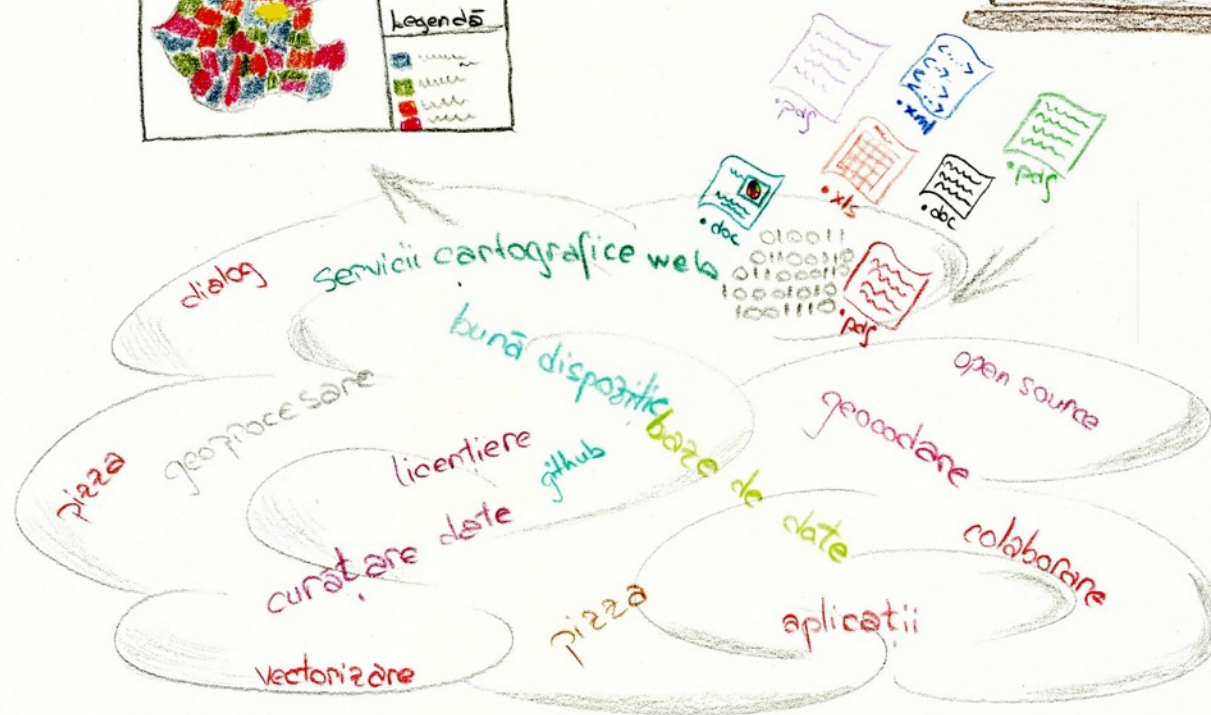 Legendă
.pdf
.xml
.pdf
.xls
.doc
.doc
010011
01100110
011000110
10001010
1001110
.pdf
servicii cartografice web
dialog
bună dispoziție
open source
geoprocesare
geocodare
licențiere
github
baze de date
pizza
curațare date
colaborare
pizza
aplicații
vectorizare